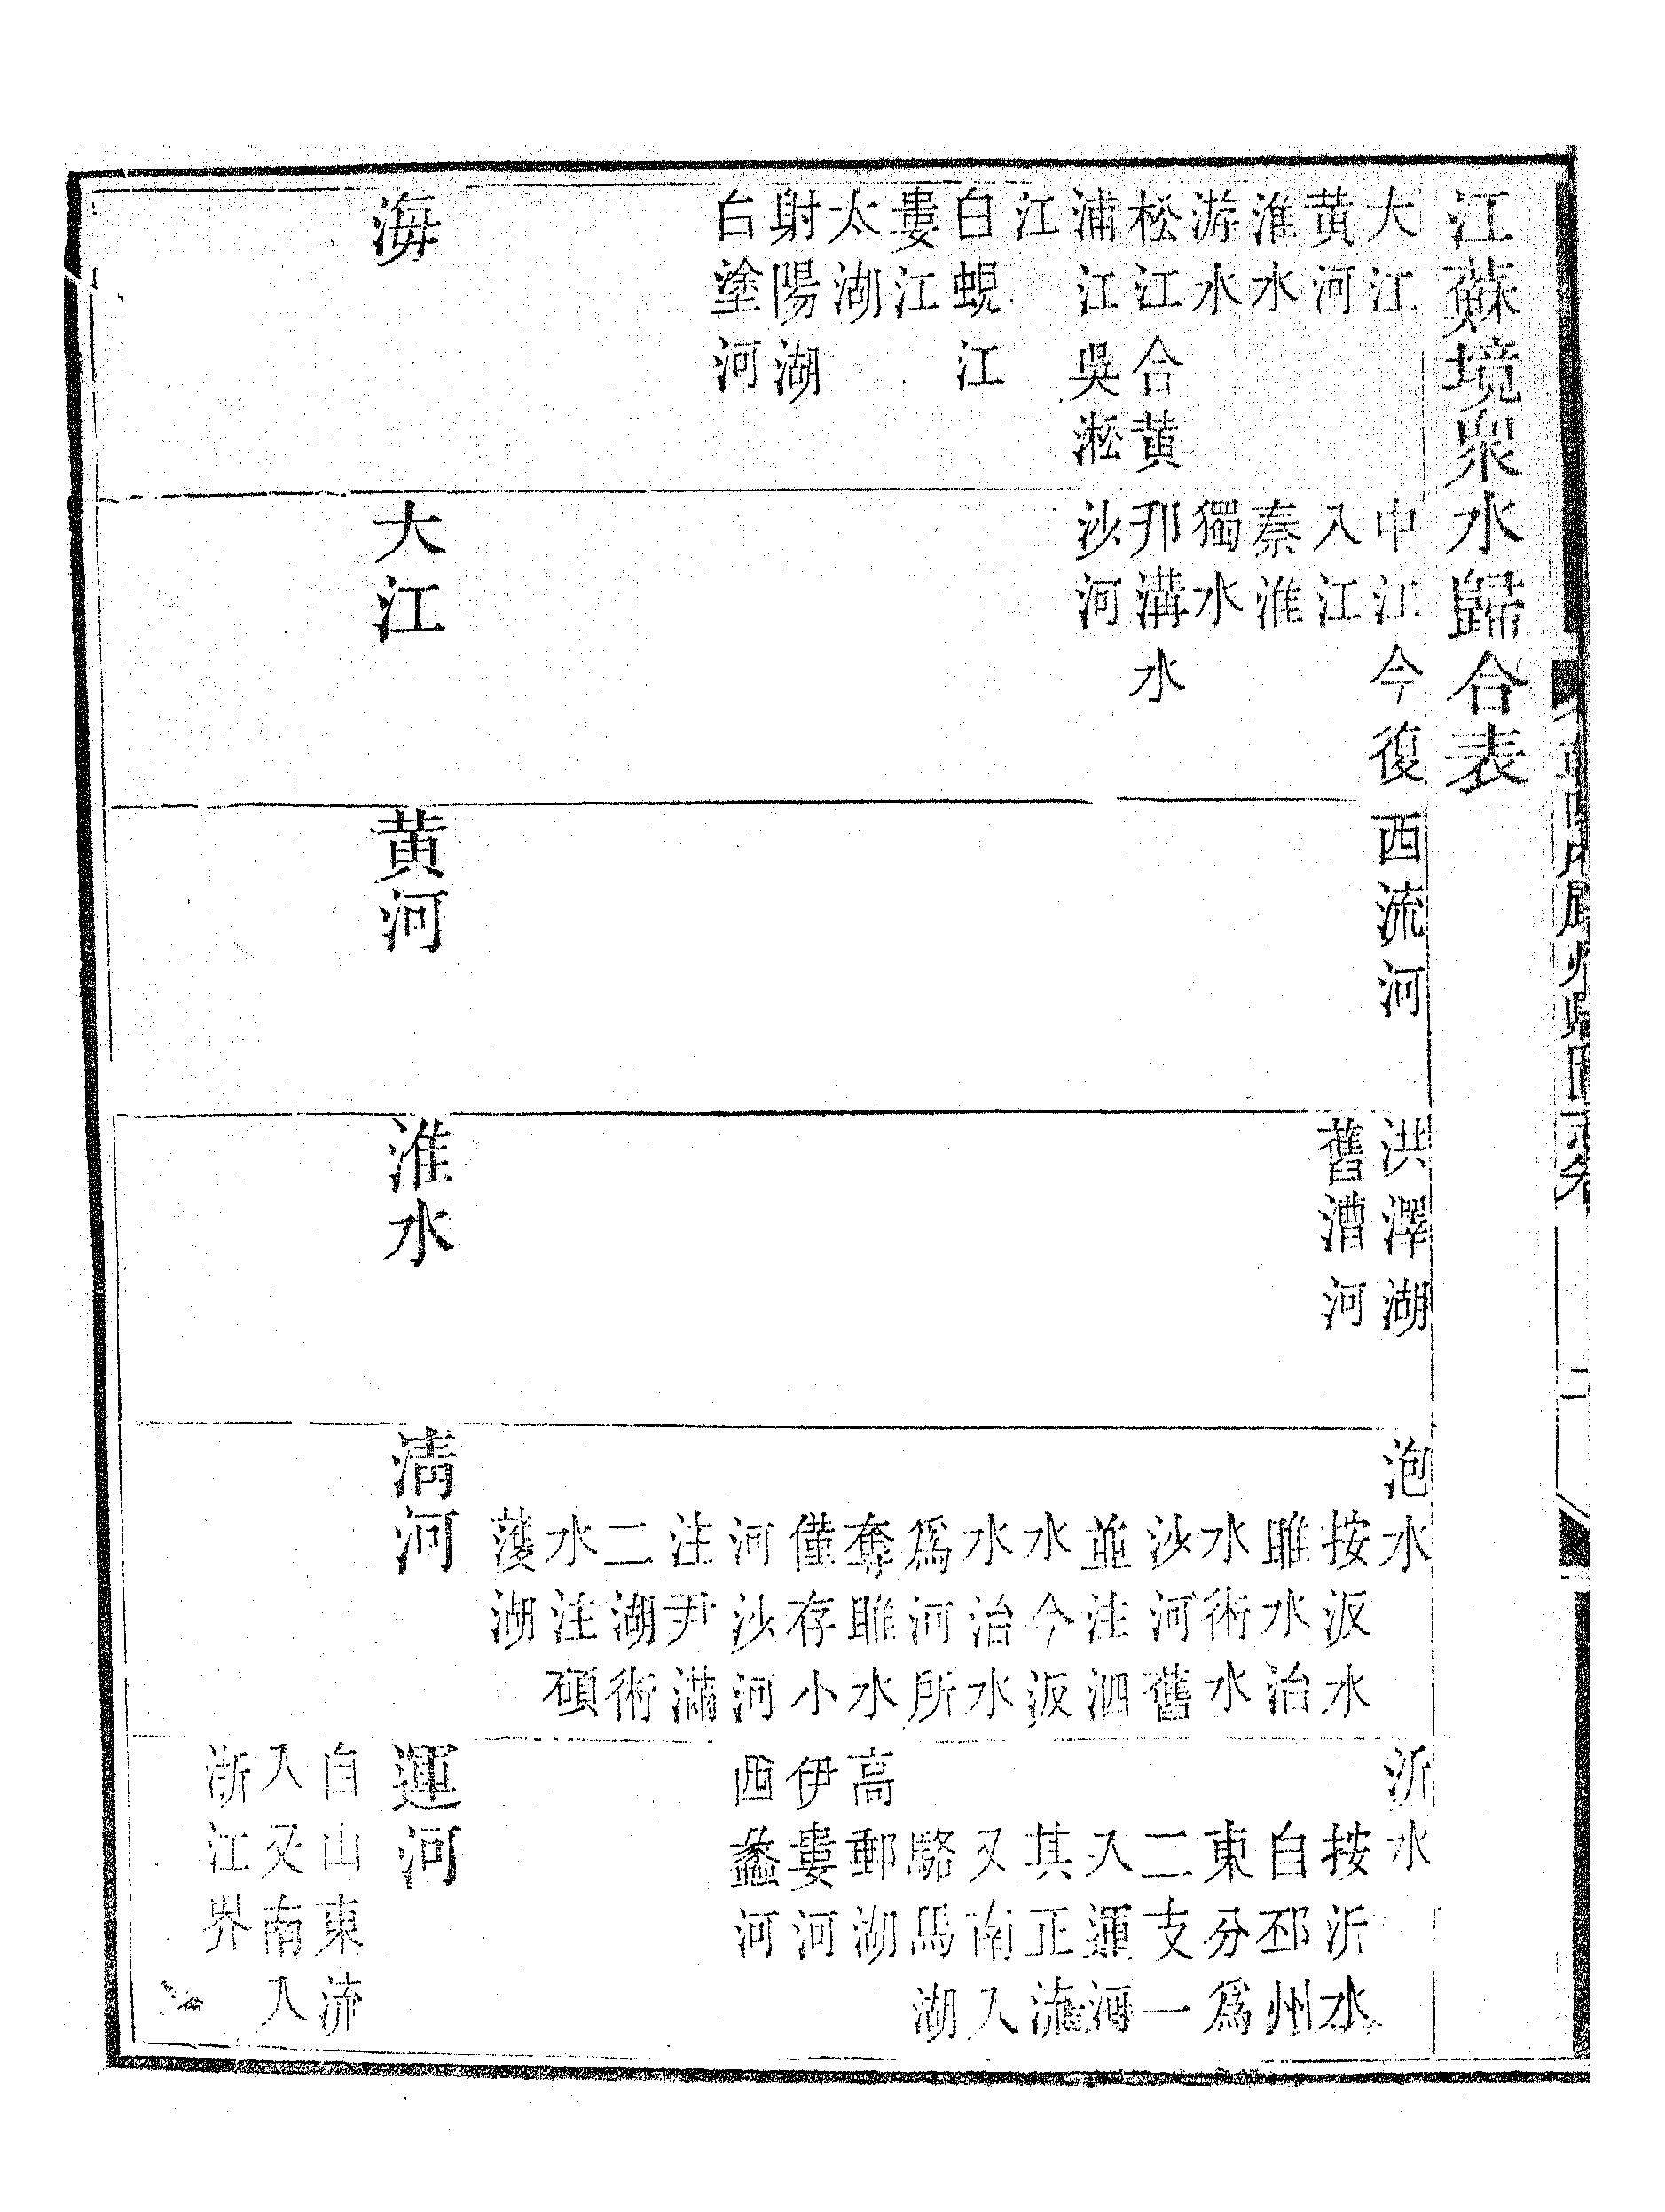 江蘇境衆水歸合表
大江
黄河
淮水
游水
松江合黄
浦江吳淞
江
白蜆江
婁江
太湖
射陽湖
白塗河
海
中江今復
入江
秦淮
獨水
邗溝水
沙河
大江
西流河
黄河
洪澤湖
舊漕河
淮水
泡水
按汳水
睢水治
水術水
沙河舊
並注泗
水今汳
水治水
爲河所
奪睢水
僅存小
河沙河
注尹滿
二湖術
水注碩
濩湖
淸河
沂水
按沂水
自邳州
東分爲
二支一
入運河
其正流
又南入
駱馬湖
高郵湖
伊婁河
西蠡河
運河
自山東流
入又南入
浙江界